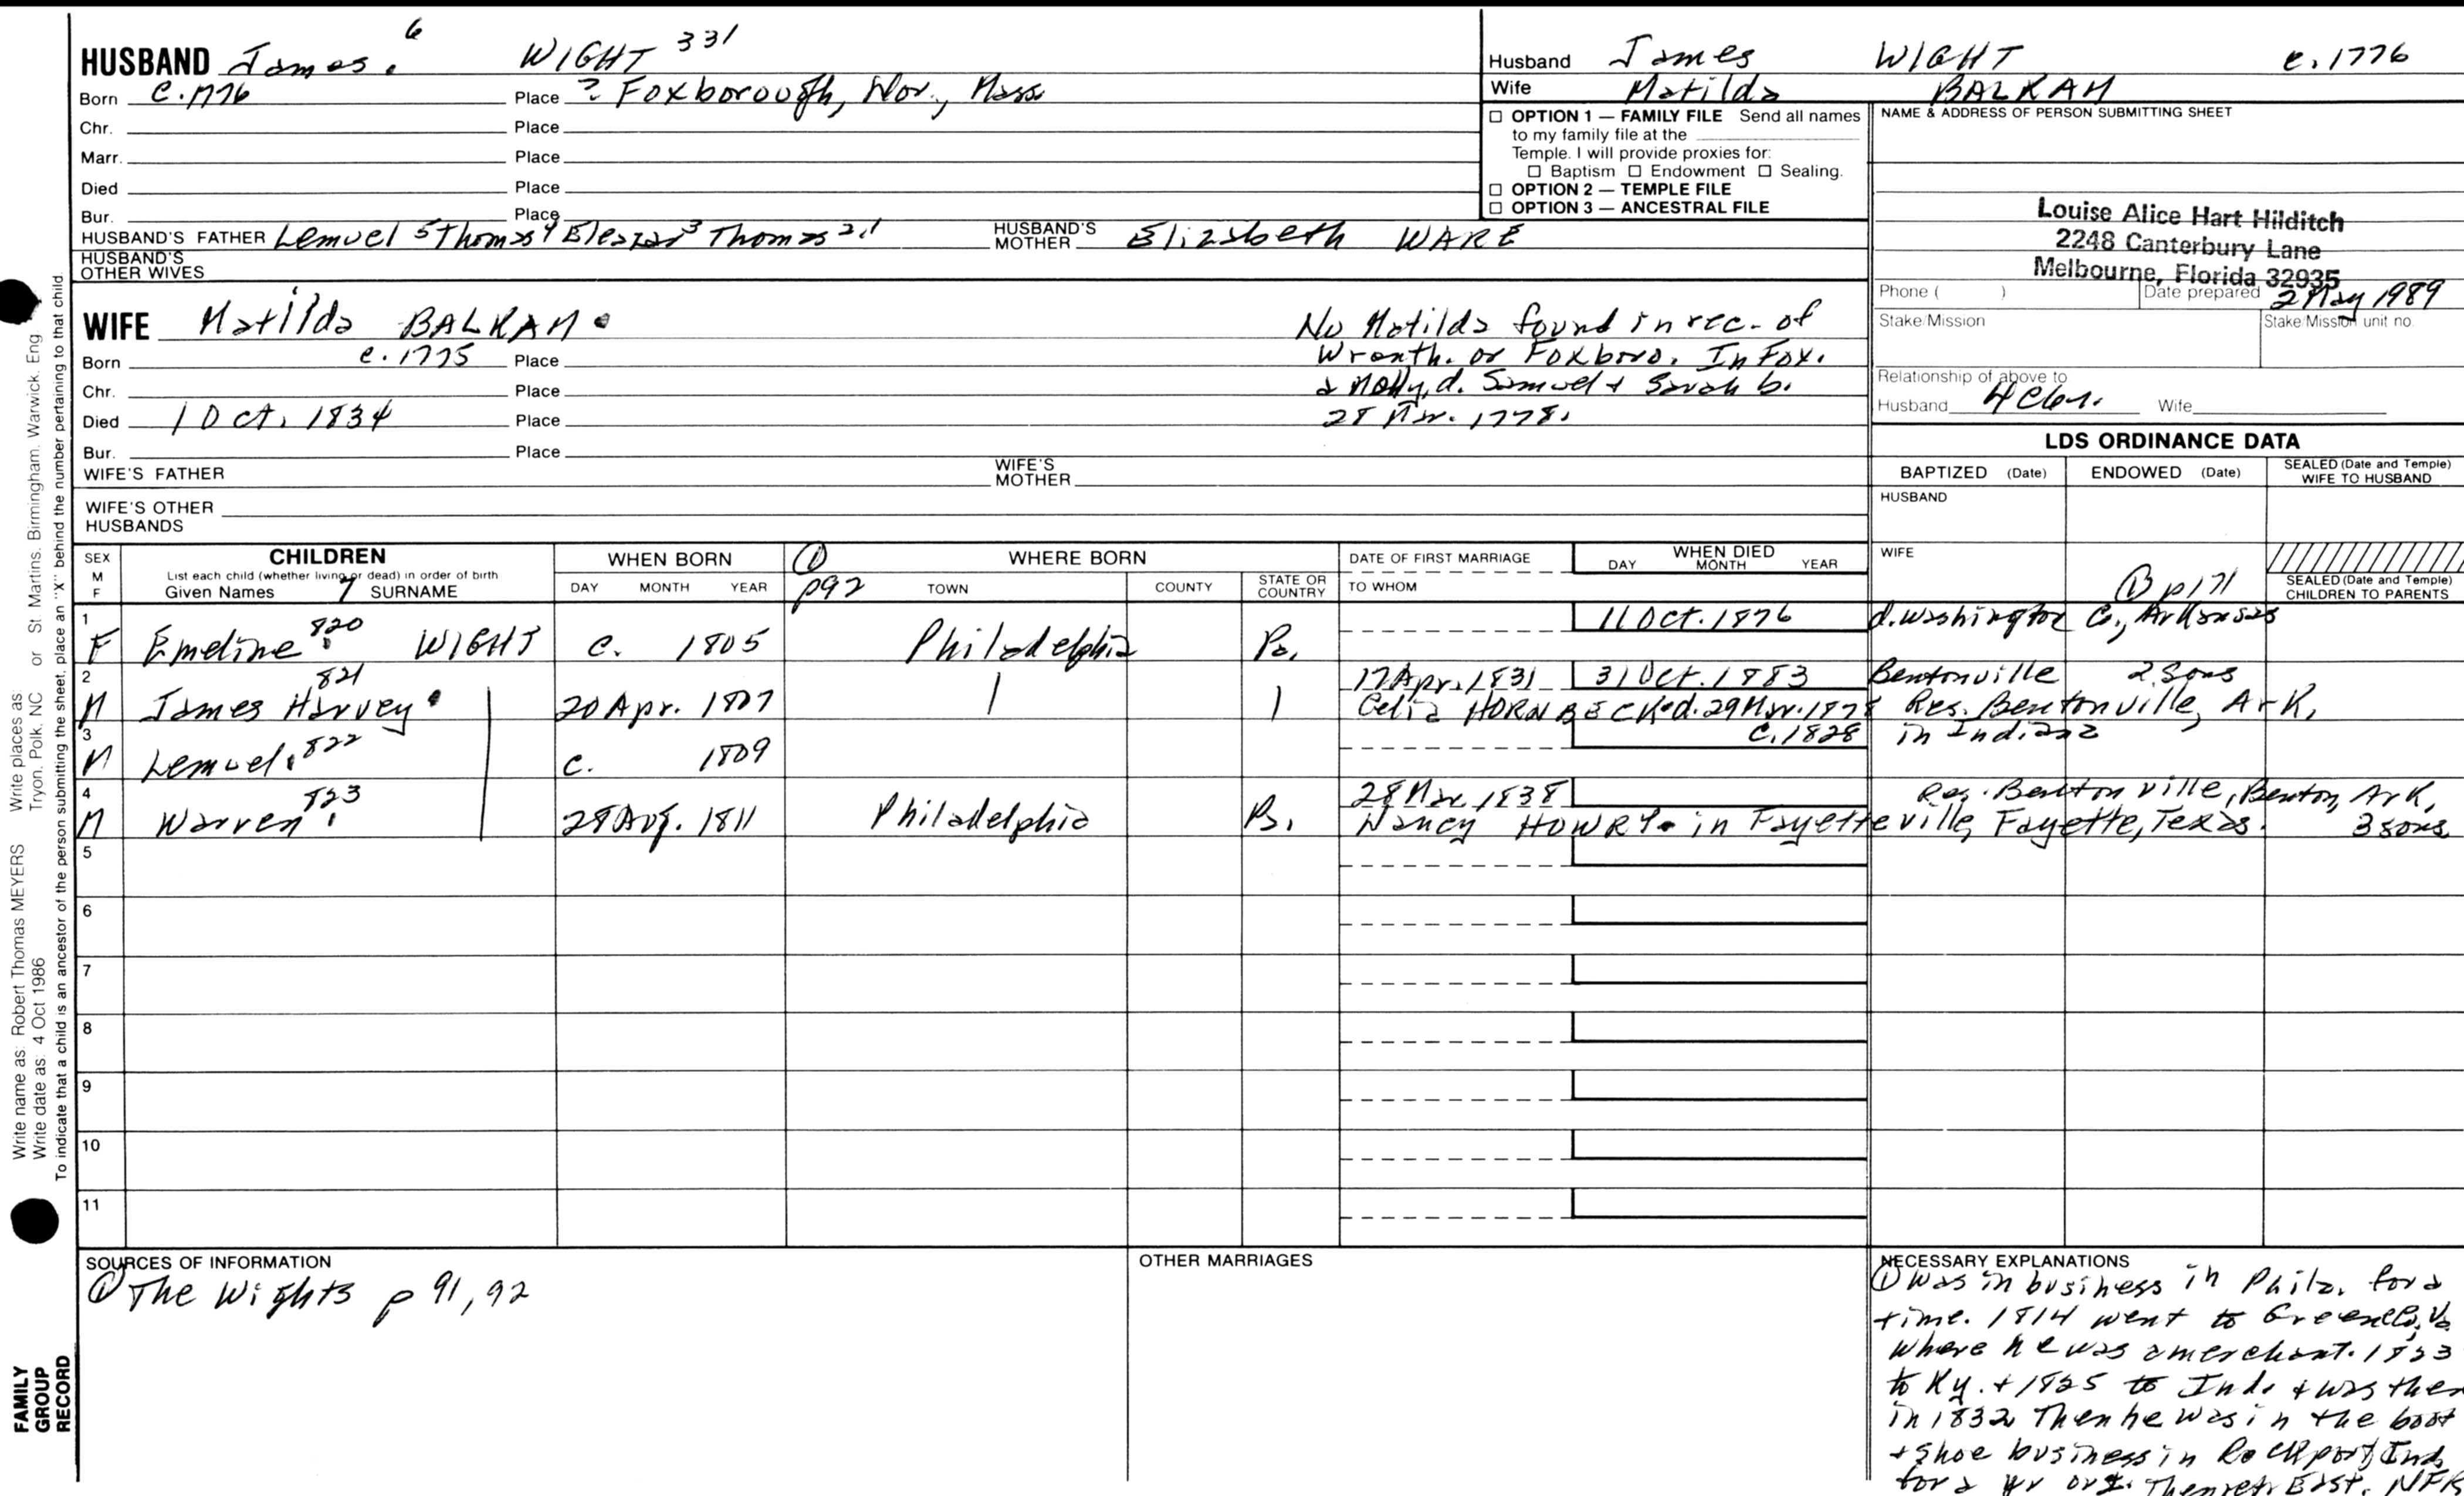 HUSBAND James. 6 WIGHT 331
Born c. 1776 Place ? Foxborough, Nor., Mass
Chr. Place
Marr. Place
Died Place
Bur. Place
HUSBAND'S FATHER Lemuel 5 Thomas 4 Eleazar 3 Thomas 2,1 HUSBAND'S MOTHER Elizabeth WARE
HUSBAND'S OTHER WIVES
Husband James WIGHT c. 1776
Wife Matilda BALKAM
☐ OPTION 1 — FAMILY FILE Send all names
to my family file at the
Temple. I will provide proxies for:
☐ Baptism ☐ Endowment ☐ Sealing.
☐ OPTION 2 — TEMPLE FILE
☐ OPTION 3 — ANCESTRAL FILE
NAME & ADDRESS OF PERSON SUBMITTING SHEET
Louise Alice Hart Hilditch
2248 Canterbury Lane
Melbourne, Florida 32935
Phone ( ) Date prepared 2 May 1989
Stake/Mission Stake/Mission unit no.
Relationship of above to
Husband Wife
WIFE Matilda BALKAM.
Born c. 1775 Place
Chr. Place
Died 1 Oct. 1834 Place
Bur. Place
WIFE'S FATHER WIFE'S MOTHER
WIFE'S OTHER HUSBANDS
No Matilda found in rec. of
Wrenth. or Foxboro. In Fox.
a Molly, d. Samuel + Sarah b.
28 Mar. 1778.
LDS ORDINANCE DATA
BAPTIZED (Date) ENDOWED (Date) SEALED (Date and Temple) WIFE TO HUSBAND
HUSBAND
WIFE
SEALED (Date and Temple) CHILDREN TO PARENTS
① p171
SEX M F CHILDREN WHEN BORN ① p92 WHERE BORN DATE OF FIRST MARRIAGE WHEN DIED
List each child (whether living or dead) in order of birth
Given Names 7 SURNAME DAY MONTH YEAR TOWN COUNTY STATE OR COUNTRY TO WHOM DAY MONTH YEAR
1 F Emeline. 820 WIGHT c. 1805 Philadelphia Pa. 11 Oct. 1876 d. Washington Co., Arkansas
2 M James Harvey. 821 20 Apr. 1807 17 Apr. 1831 31 Oct. 1883 Bentonville 2 Sons
Celia HORNBECK. d. 29 Mar. 1878 Res. Bentonville, Ark.
3 M Lemuel. 822 c. 1809 c. 1828 in Indiana
4 M Warren. 823 28 Aug. 1811 Philadelphia Pa. 28 Mar. 1838 Res. Bentonville, Benton, Ark.
Nancy HOWRY. in Fayetteville, Fayette, Texas. 3 sons
5
6
7
8
9
10
11
SOURCES OF INFORMATION
① The Wights p 91, 92
OTHER MARRIAGES
NECESSARY EXPLANATIONS
① Was in business in Phila. for a
time. 1814 went to Va
where he was a merchant. 1823
to Ky. + 1825 to Ind. + was then
in 1832 Then he was in the boot
+ shoe business in Rockport, Ind.
for a yr or East. NFR
Write name as: Robert Thomas MEYERS Write places as Tryon, Polk, NC or St Martins, Birmingham, Warwick, Eng
Write date as: 4 Oct 1986
To indicate that a child is an ancestor of the person submitting the sheet, place an "X" behind the number pertaining to that child.
FAMILY
GROUP
RECORD